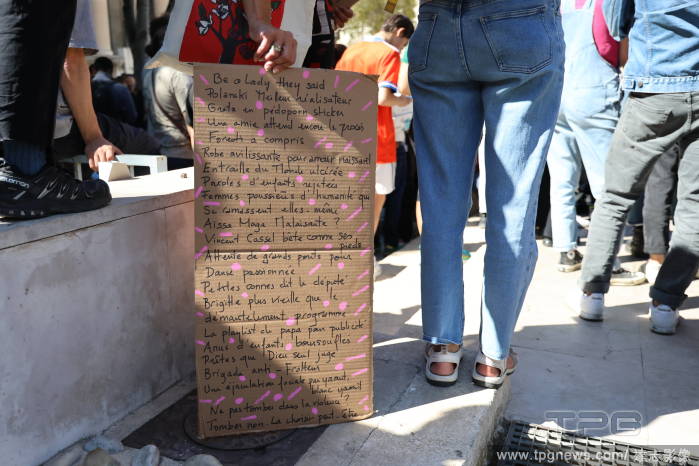 Be a Lady they said
Polanski Meilleur réalisateur
Greta en pédoporn sticker
Une amie attend encore le procès
Foresti a compris
Robe avilissante pour amour naissant
Entraille du Monde ulcérée
Paroles d'enfants rejetées
Femmes poussières d'humanité qui
se ramassent elles-même
Aïssa Maga Malaisante ?
Vincent Cassel bête comme ses pieds
Attente de grands ponts pour
Danse passionnée
Petites connes dit le député
Brigitte plus vieille que
démantèlement programmé
La playlist de papa pour publicité
Anus d'enfants boursouflés
Restes que Dieu seul juge
Brigade anti-Frotteur
Une éjaculation faciale
blanc
Ne pas tomber dans la violence ?
Tomber non. La choisir peut-être
TPG
www.tpgnews.com/達志影像